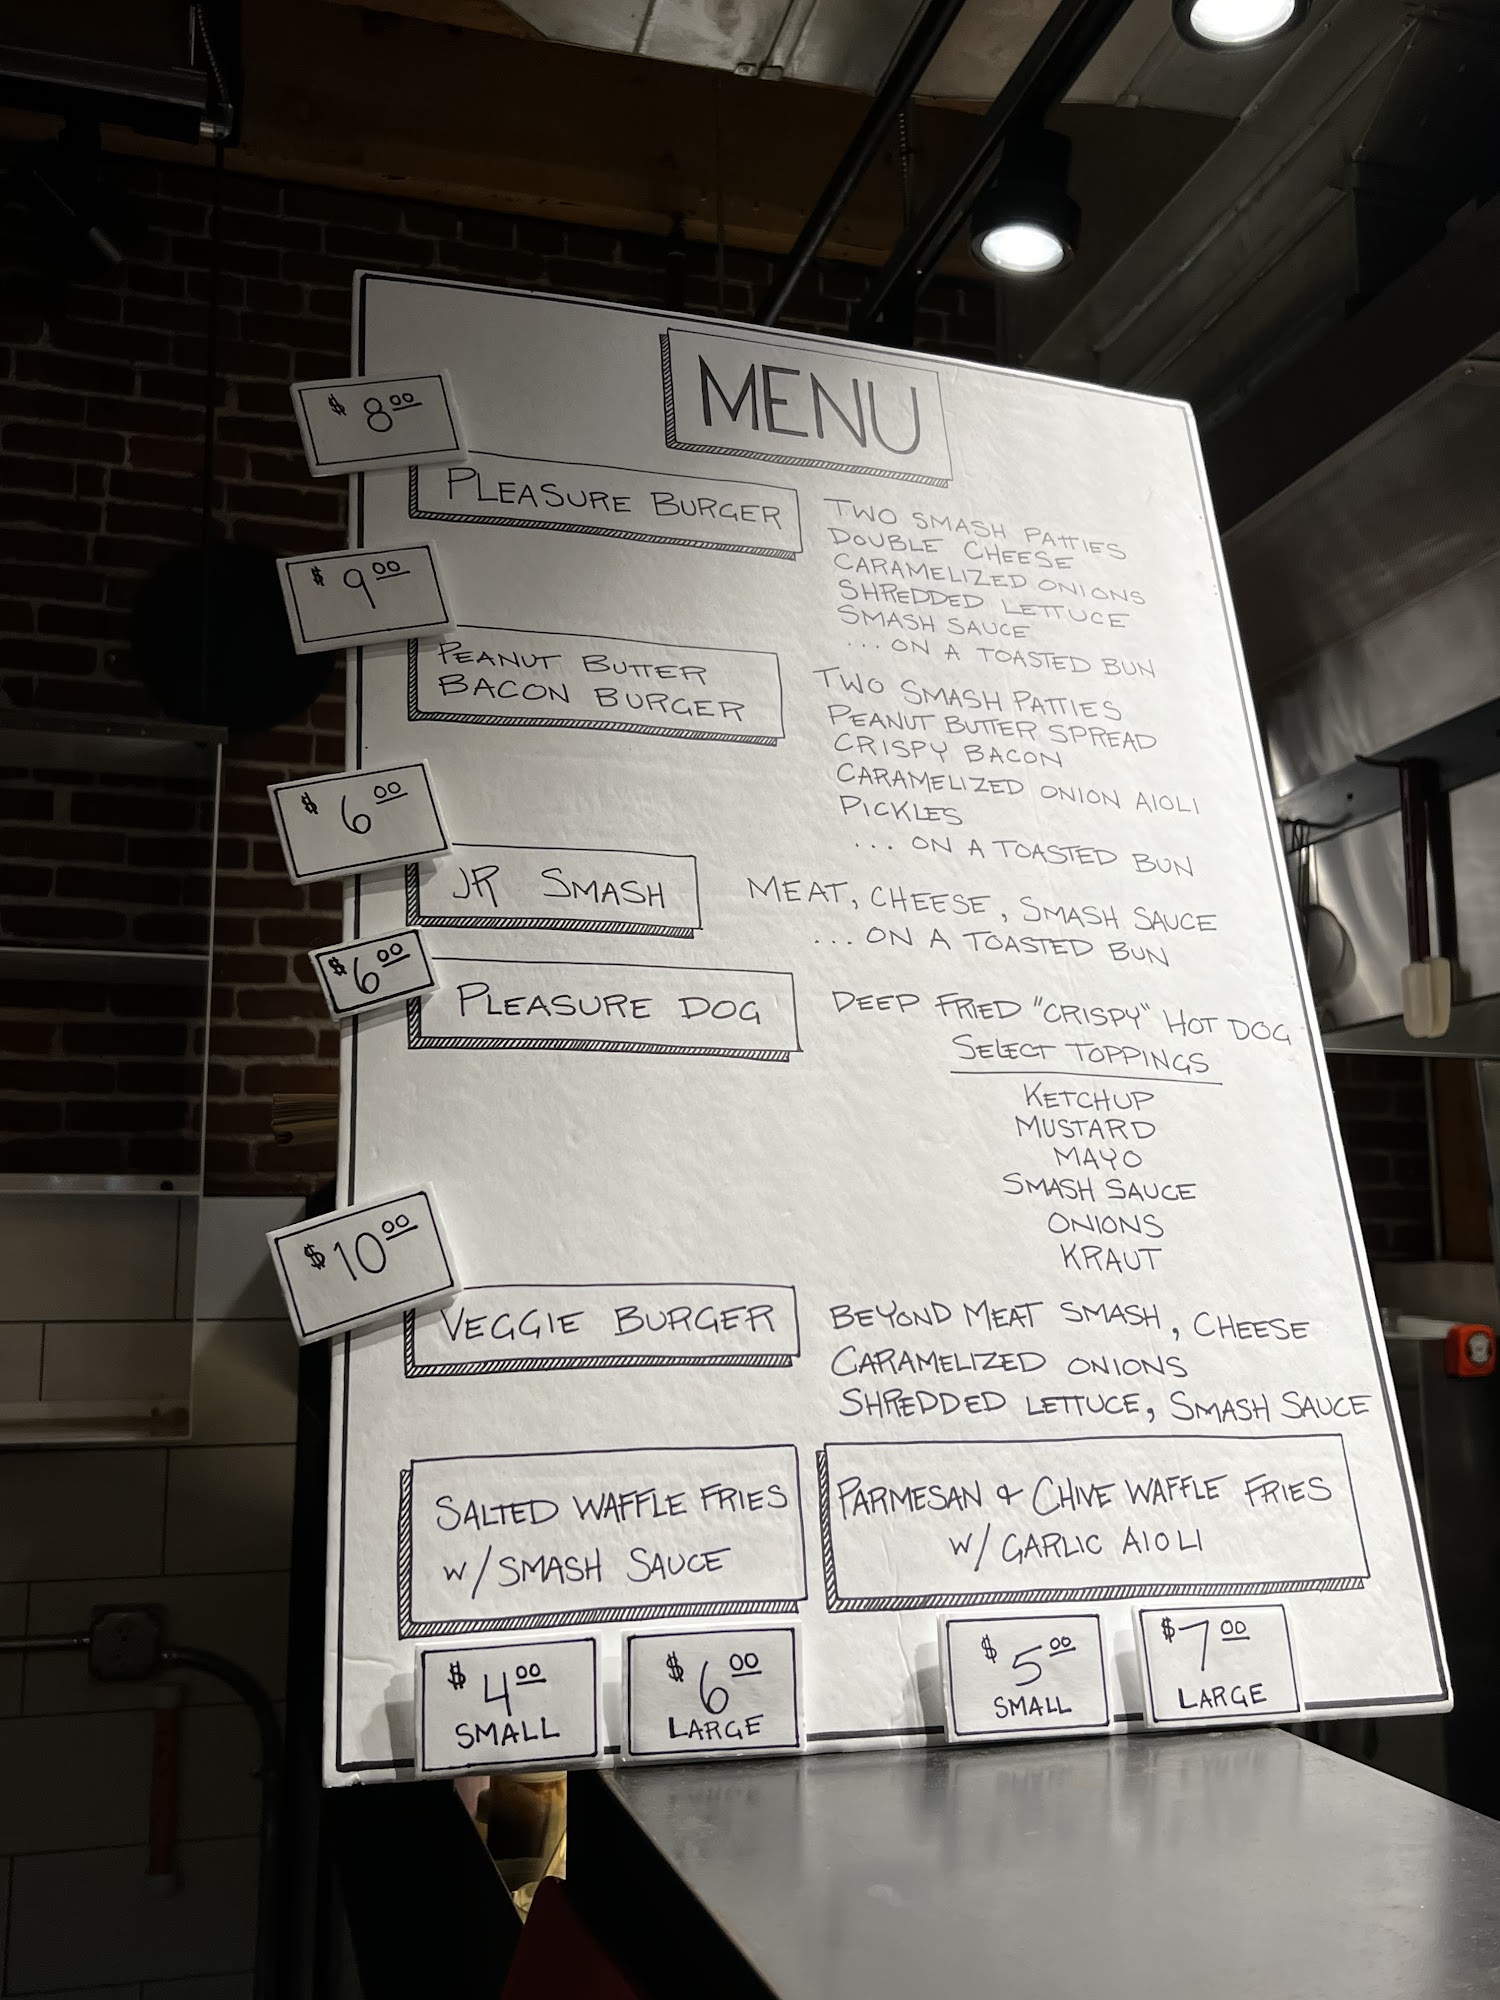 MENU
$8.00
PLEASURE BURGER
TWO SMASH PATTIES
DOUBLE CHEESE
CARAMELIZED ONIONS
SHREDDED LETTUCE
SMASH SAUCE
... ON A TOASTED BUN
$9.00
PEANUT BUTTER
BACON BURGER
TWO SMASH PATTIES
PEANUT BUTTER SPREAD
CRISPY BACON
CARAMELIZED ONION AIOLI
PICKLES
... ON A TOASTED BUN
$6.00
JR SMASH
MEAT, CHEESE, SMASH SAUCE
... ON A TOASTED BUN
$6.00
PLEASURE DOG
DEEP FRIED "CRISPY" HOT DOG
SELECT TOPPINGS
KETCHUP
MUSTARD
MAYO
SMASH SAUCE
ONIONS
KRAUT
$10.00
VEGGIE BURGER
BEYOND MEAT SMASH, CHEESE
CARAMELIZED ONIONS
SHREDDED LETTUCE, SMASH SAUCE
SALTED WAFFLE FRIES
W/SMASH SAUCE
$4.00
SMALL
$6.00
LARGE
PARMESAN & CHIVE WAFFLE FRIES
W/ GARLIC AIOLI
$5.00
SMALL
$7.00
LARGE